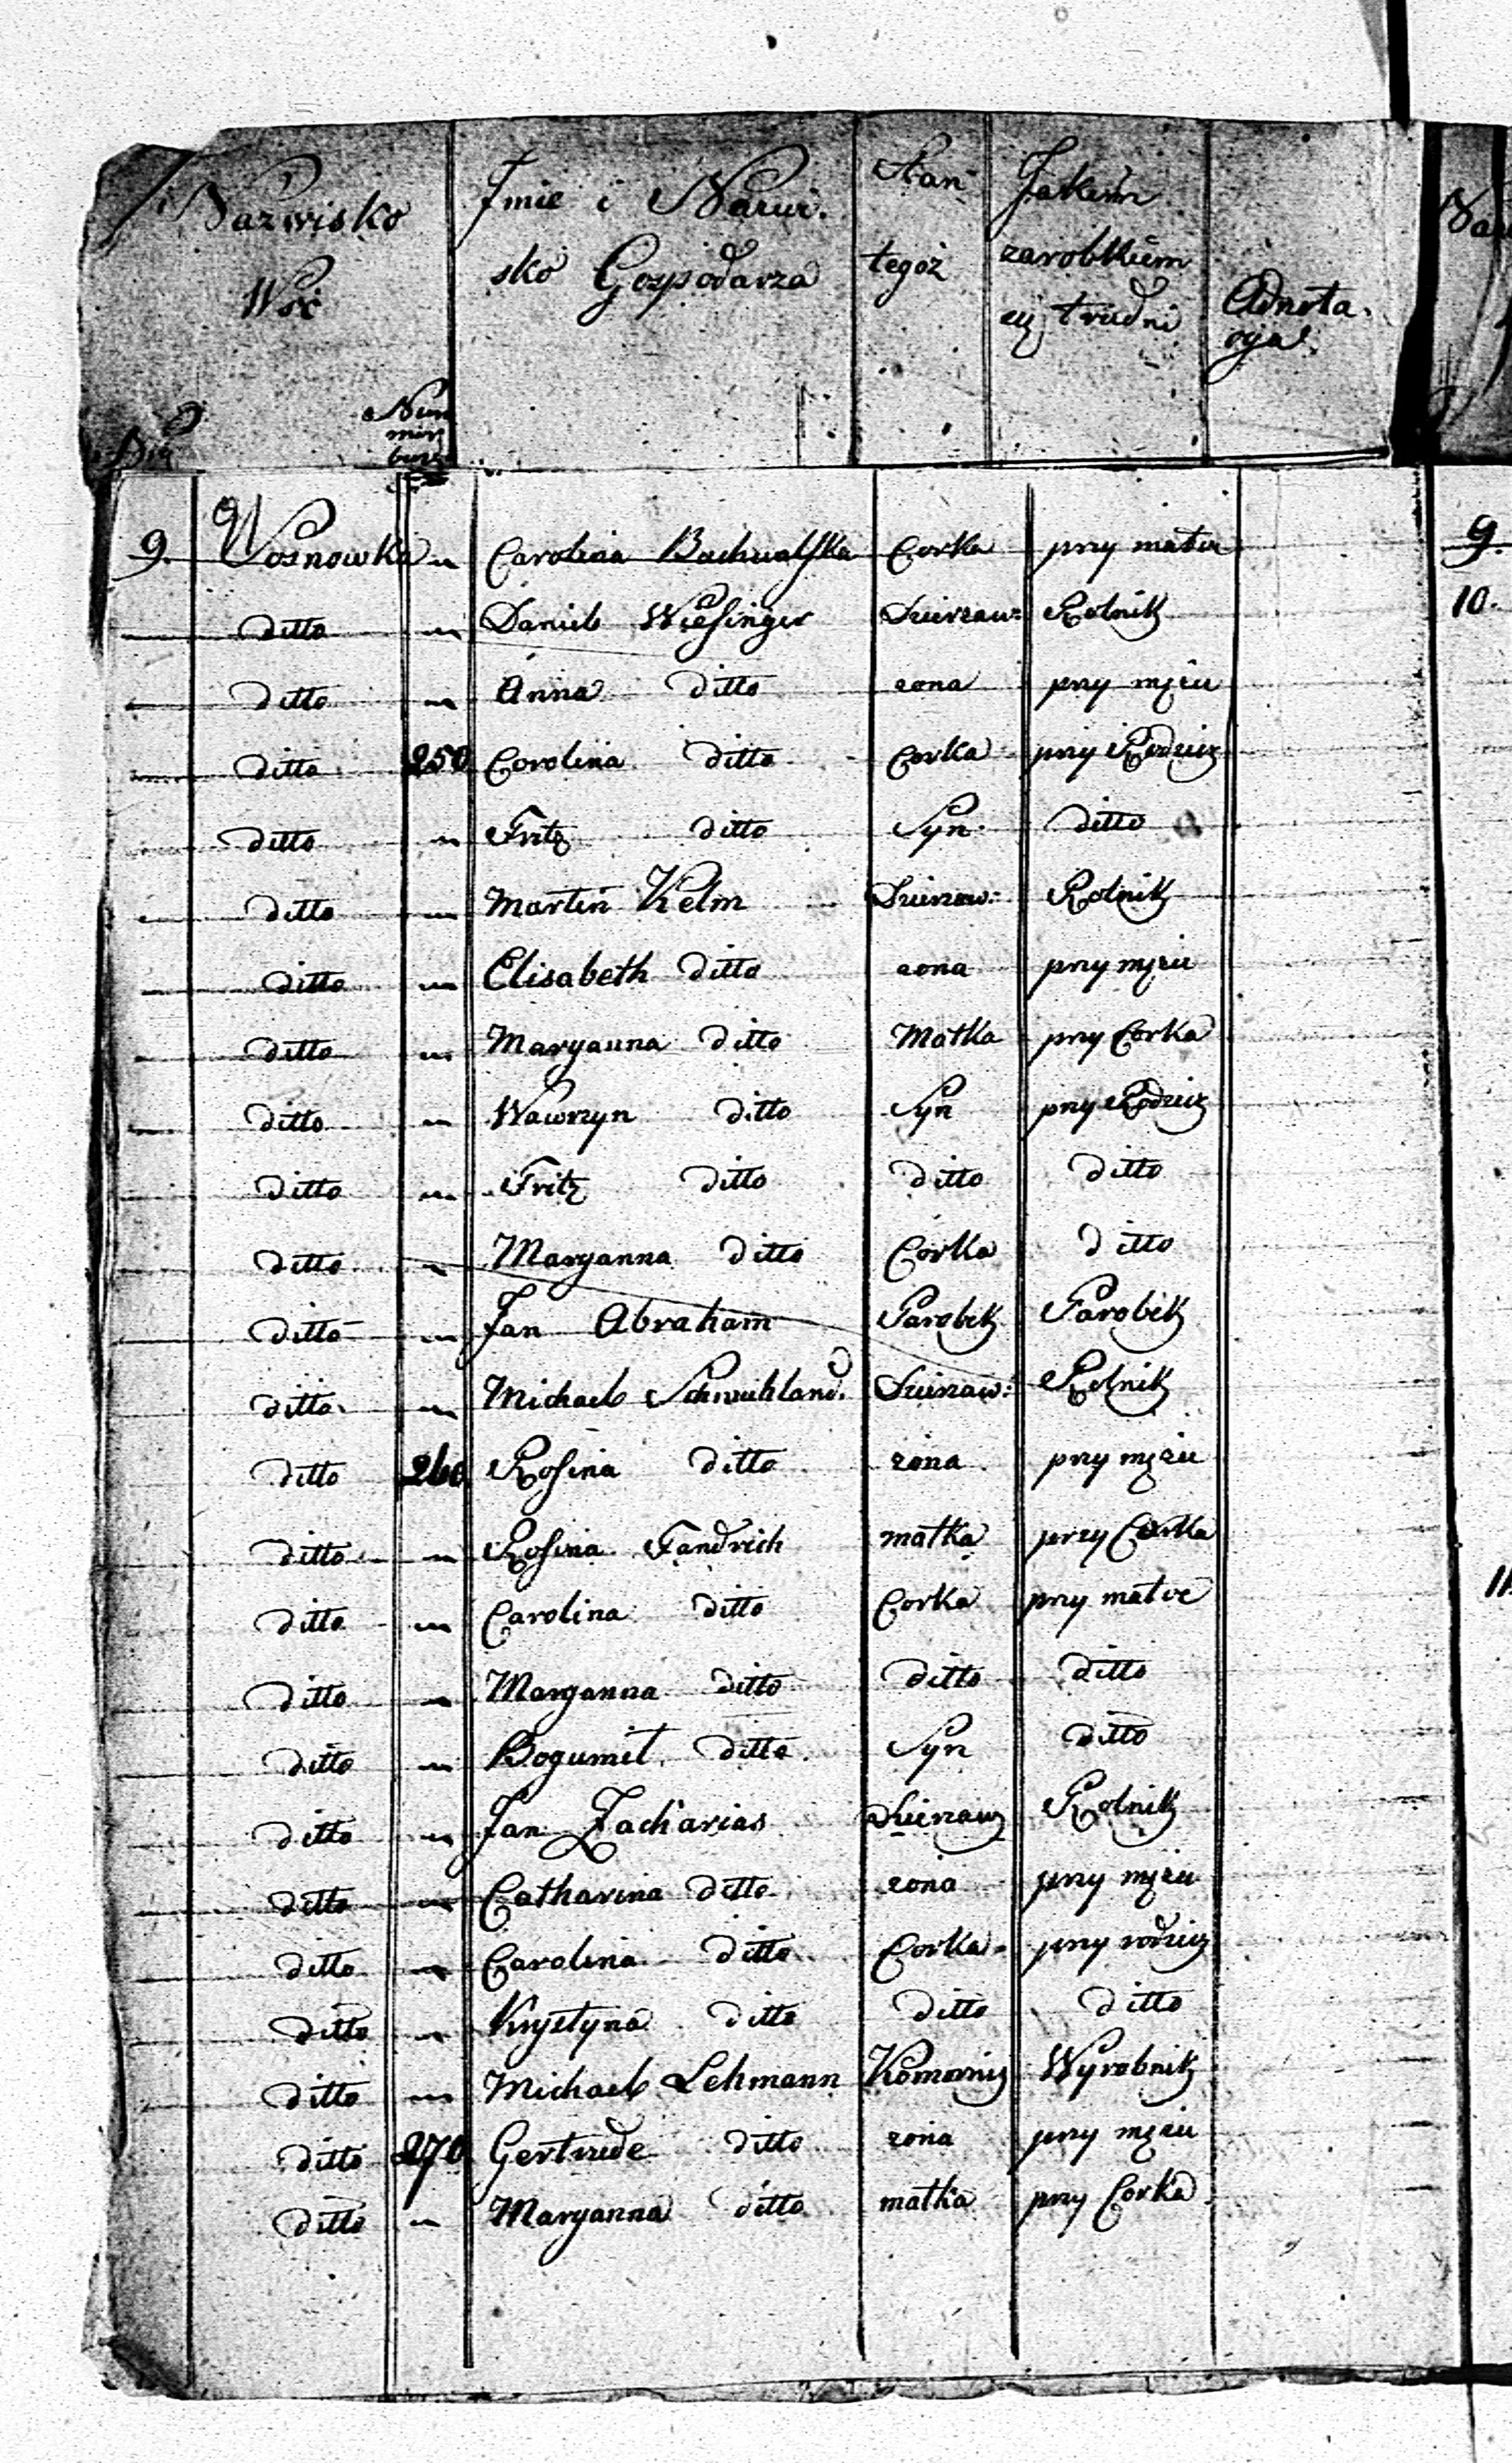 Nazwisko Wsi
Nummer
Imie i Nazwi.
sko Gospodarza
Stan
tegoż
Jakiem
zarobkiem
trudni
Adnota.
cyja
9. Wosnowka " Carolina Bachwalska Corka przy matce
ditto " Daniel Wiesinger Dzierzaw: Rolnik
ditto " Anna ditto zona przy mężu
ditto 250 Carolina ditto Corka przy Rodzicz
ditto " Fritz ditto Syn ditto
ditto " Martin Kelm Dzierzaw: Rolnik
ditto " Elisabeth ditto zona przy mężu
ditto " Maryanna ditto Matka przy Corka
ditto " Wawrzyn ditto Syn przy Rodzicz
ditto " Fritz ditto ditto ditto
ditto " Maryanna ditto Corka ditto
ditto " Jan Abraham Parobek Parobek
ditto " Michael Schmuhland. Dzierzaw: Rolnik
ditto 260 Rosina ditto zona przy mężu
ditto " Rosina Fandrich matka przy Corka
ditto " Carolina ditto Corka przy matce
ditto " Maryanna ditto ditto ditto
ditto " Bogumił ditto Syn ditto
ditto " Jan Zacharias Dzierzaw Rolnik
ditto " Catharina ditto zona przy mężu
ditto " Carolina ditto Corka przy rodzicz
ditto " Krystyna ditto ditto ditto
ditto " Michael Lehmann Komornig Wyrobnik
ditto 270 Gertrude ditto zona przy mężu
ditto " Maryanna ditto matka przy Corka
9.
10.
11